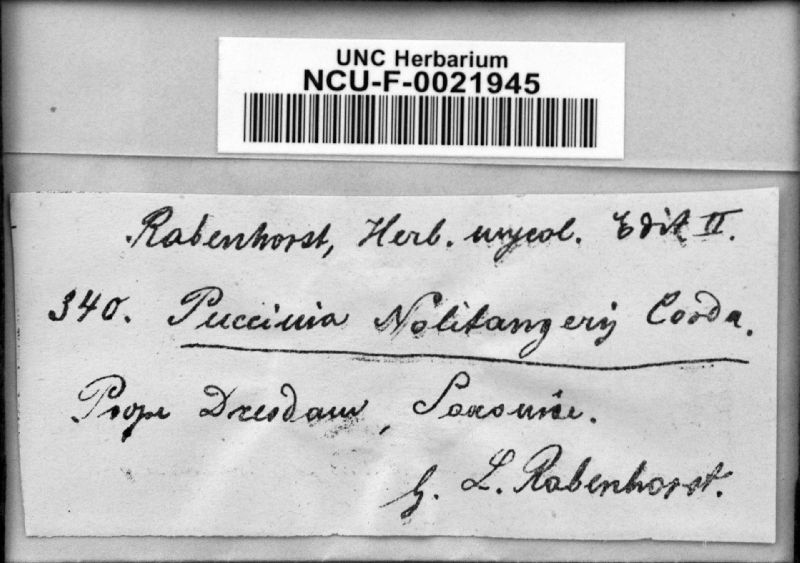 UNC Herbarium
NCU-F-0021945
Rabenhorst, Herb. mycol. Edit II.
340. Puccinia Nolitangerij Corda.
Prope Dresdam, Saxoniae.
L. Rabenhorst.